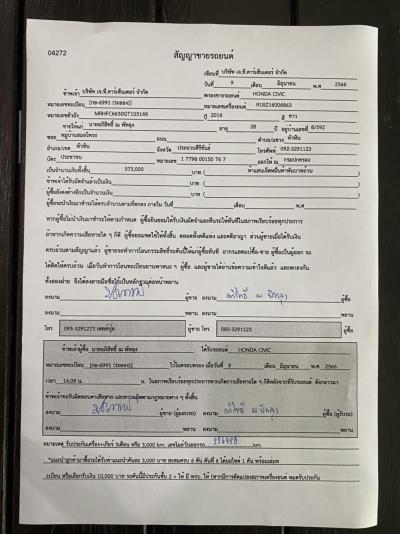 04272
สัญญาขายรถยนต์
เขียนที่ บริษัท เจ.ที.คาร์เซ็นเตอร์ จำกัด
วันที่ 9 เดือน มิถุนายน พ.ศ 2566
ข้าพเจ้า บริษัท เจ.ที.คาร์เซ็นเตอร์ จำกัด ตกลงขายรถยนต์ HONDA CIVIC
หมายเลขทะเบียน [กธ-6991 (ระยอง)] หมายเลขเครื่องยนต์ R18Z16006863
หมายเลขตัวถัง MRHFC6630GT105149 ปี 2016 สี ขาว
ขายให้แก่ นายอภิสิทธิ์ ณ พัทลุง อายุ 28 ปี อยู่บ้านเลขที่ 8/392
ซอย หมู่บ้านสมอโพรง ถนน ตำบล/แขวง หัวหิน
อำเภอ/เขต หัวหิน จังหวัด ประจวบคีรีขันธ์ โทรศัพท์ 092-3291123
บัตร ประชาชน หมายเลข 1 7798 00150 76 7 ออกให้ ณ กรมปกครอง
เป็นจำนวนเงินทั้งสิ้น 575,000 บาท ( ห้าแสนเจ็ดหมื่นห้าพันบาทถ้วน )
ข้าพเจ้าได้รับมัดจำแล้วเป็นเงิน บาท ( )
ผู้ซื้อยังคงค้างอีกเป็นจำนวนเงิน บาท ( )
ผู้ซื้อจะนำเงินมาชำระให้ครบจำนวนตามที่ตกลง ภายใน วันที่ เดือน พ.ศ
หากผู้ซื้อไม่นำเงินมาชำระให้ตามกำหนด ผู้ซื้อยินยอมให้ริบเงินมัดจำและคืนรถให้ทันทีในสภาพเรียบร้อยทุกประการ
ถ้าหากเกิดความเสียหายใด ๆ ก็ดี ผู้ซื้อยอมชดใช้ให้ทั้งสิ้น ตลอดทั้งคดีแพ่ง และคดีอาญา ส่วนผู้ขายเมื่อได้รับเงิน
ครบถ้วนตามสัญญาแล้ว ผู้ขายจะทำการโอนกรรมสิทธิ์รถคันนี้ให้แก่ผู้ซื้อทันที
ทั้งสองฝ่าย จึงได้ลงลายมือชื่อไว้เป็นหลักฐานต่อหน้าพยาน
ลงนาม ผู้ขาย ลงนาม อภิสิทธิ์ ณ พัทลุง ผู้ซื้อ
ลงนาม พยาน ลงนาม พยาน
โทร 093-3291272 ผู้ขาย โทร 092-3291123 ผู้ซื้อ
ข้าพเจ้าผู้ซื้อ นายอภิสิทธิ์ ณ พัทลุง ได้รับรถยนต์ HONDA CIVIC
หมายเลขทะเบียน [กธ-6991 (ระยอง)] ไว้ในครอบครอง เมื่อวันที่ 9 เดือน มิถุนายน พ.ศ. 2566
เวลา 14.09 น. น. ในสภาพเรียบร้อยทุกประการหากเกิดการเสียหายใด ๆ
ลงนาม ผู้ขาย (ผู้มอบรถ) ลงนาม อภิสิทธิ์ ณ พัทลุง ผู้ซื้อ (ผู้รับรถ)
ลงนาม พยาน ลงนาม พยาน
หมายเหตุ รับประกันเครื่อง+เกียร์ 3เดือน หรือ 3,000 km.